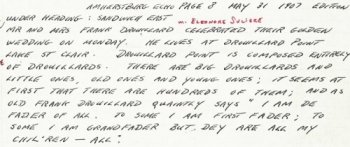 AMHERSTBURG ECHO PAGE 8 MAY 31 1907 EDITION
UNDER HEADING: SANDWICH EAST
M. ELEONORE SOLIERE
MR AND MRS FRANK DROUILLARD CELEBRATED THEIR GOLDEN
WEDDING ON MONDAY. HE LIVES AT DROUILLARD POINT
LAKE ST CLAIR. DROUILLARD POINT IS COMPOSED ENTIRELY
OF DROUILLARDS. THERE ARE BIG DROUILLARDS AND
LITTLE ONES, OLD ONES AND YOUNG ONES; IT SEEMS AT
FIRST THAT THERE ARE HUNDREDS OF THEM; AND AS
OLD FRANK DROUILLARD QUAINTLY SAYS "I AM DE
FADER OF ALL. TO SOME I AM FIRST FADER; TO
SOME I AM GRANDFADER BUT DEY ARE ALL MY
CHIL'REN — ALL".